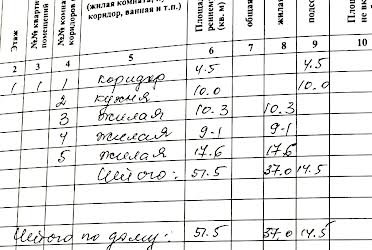 Этаж №№ кварти помещений №№ комна коридоров (жилая комната, коридор, ванная и т.п.) Площа (кв. м) общая жилая подсо Пло не
2 3 4 5 6 7 8 9 10
1 1 1 коридор 4.5 4.5
2 кухня 10.0 10.0
3 жилая 10.3 10.3
4 жилая 9.1 9.1
5 жилая 17.6 17.6
Итого: 51.5 37.0 14.5
Итого по дому: 51.5 37.0 14.5